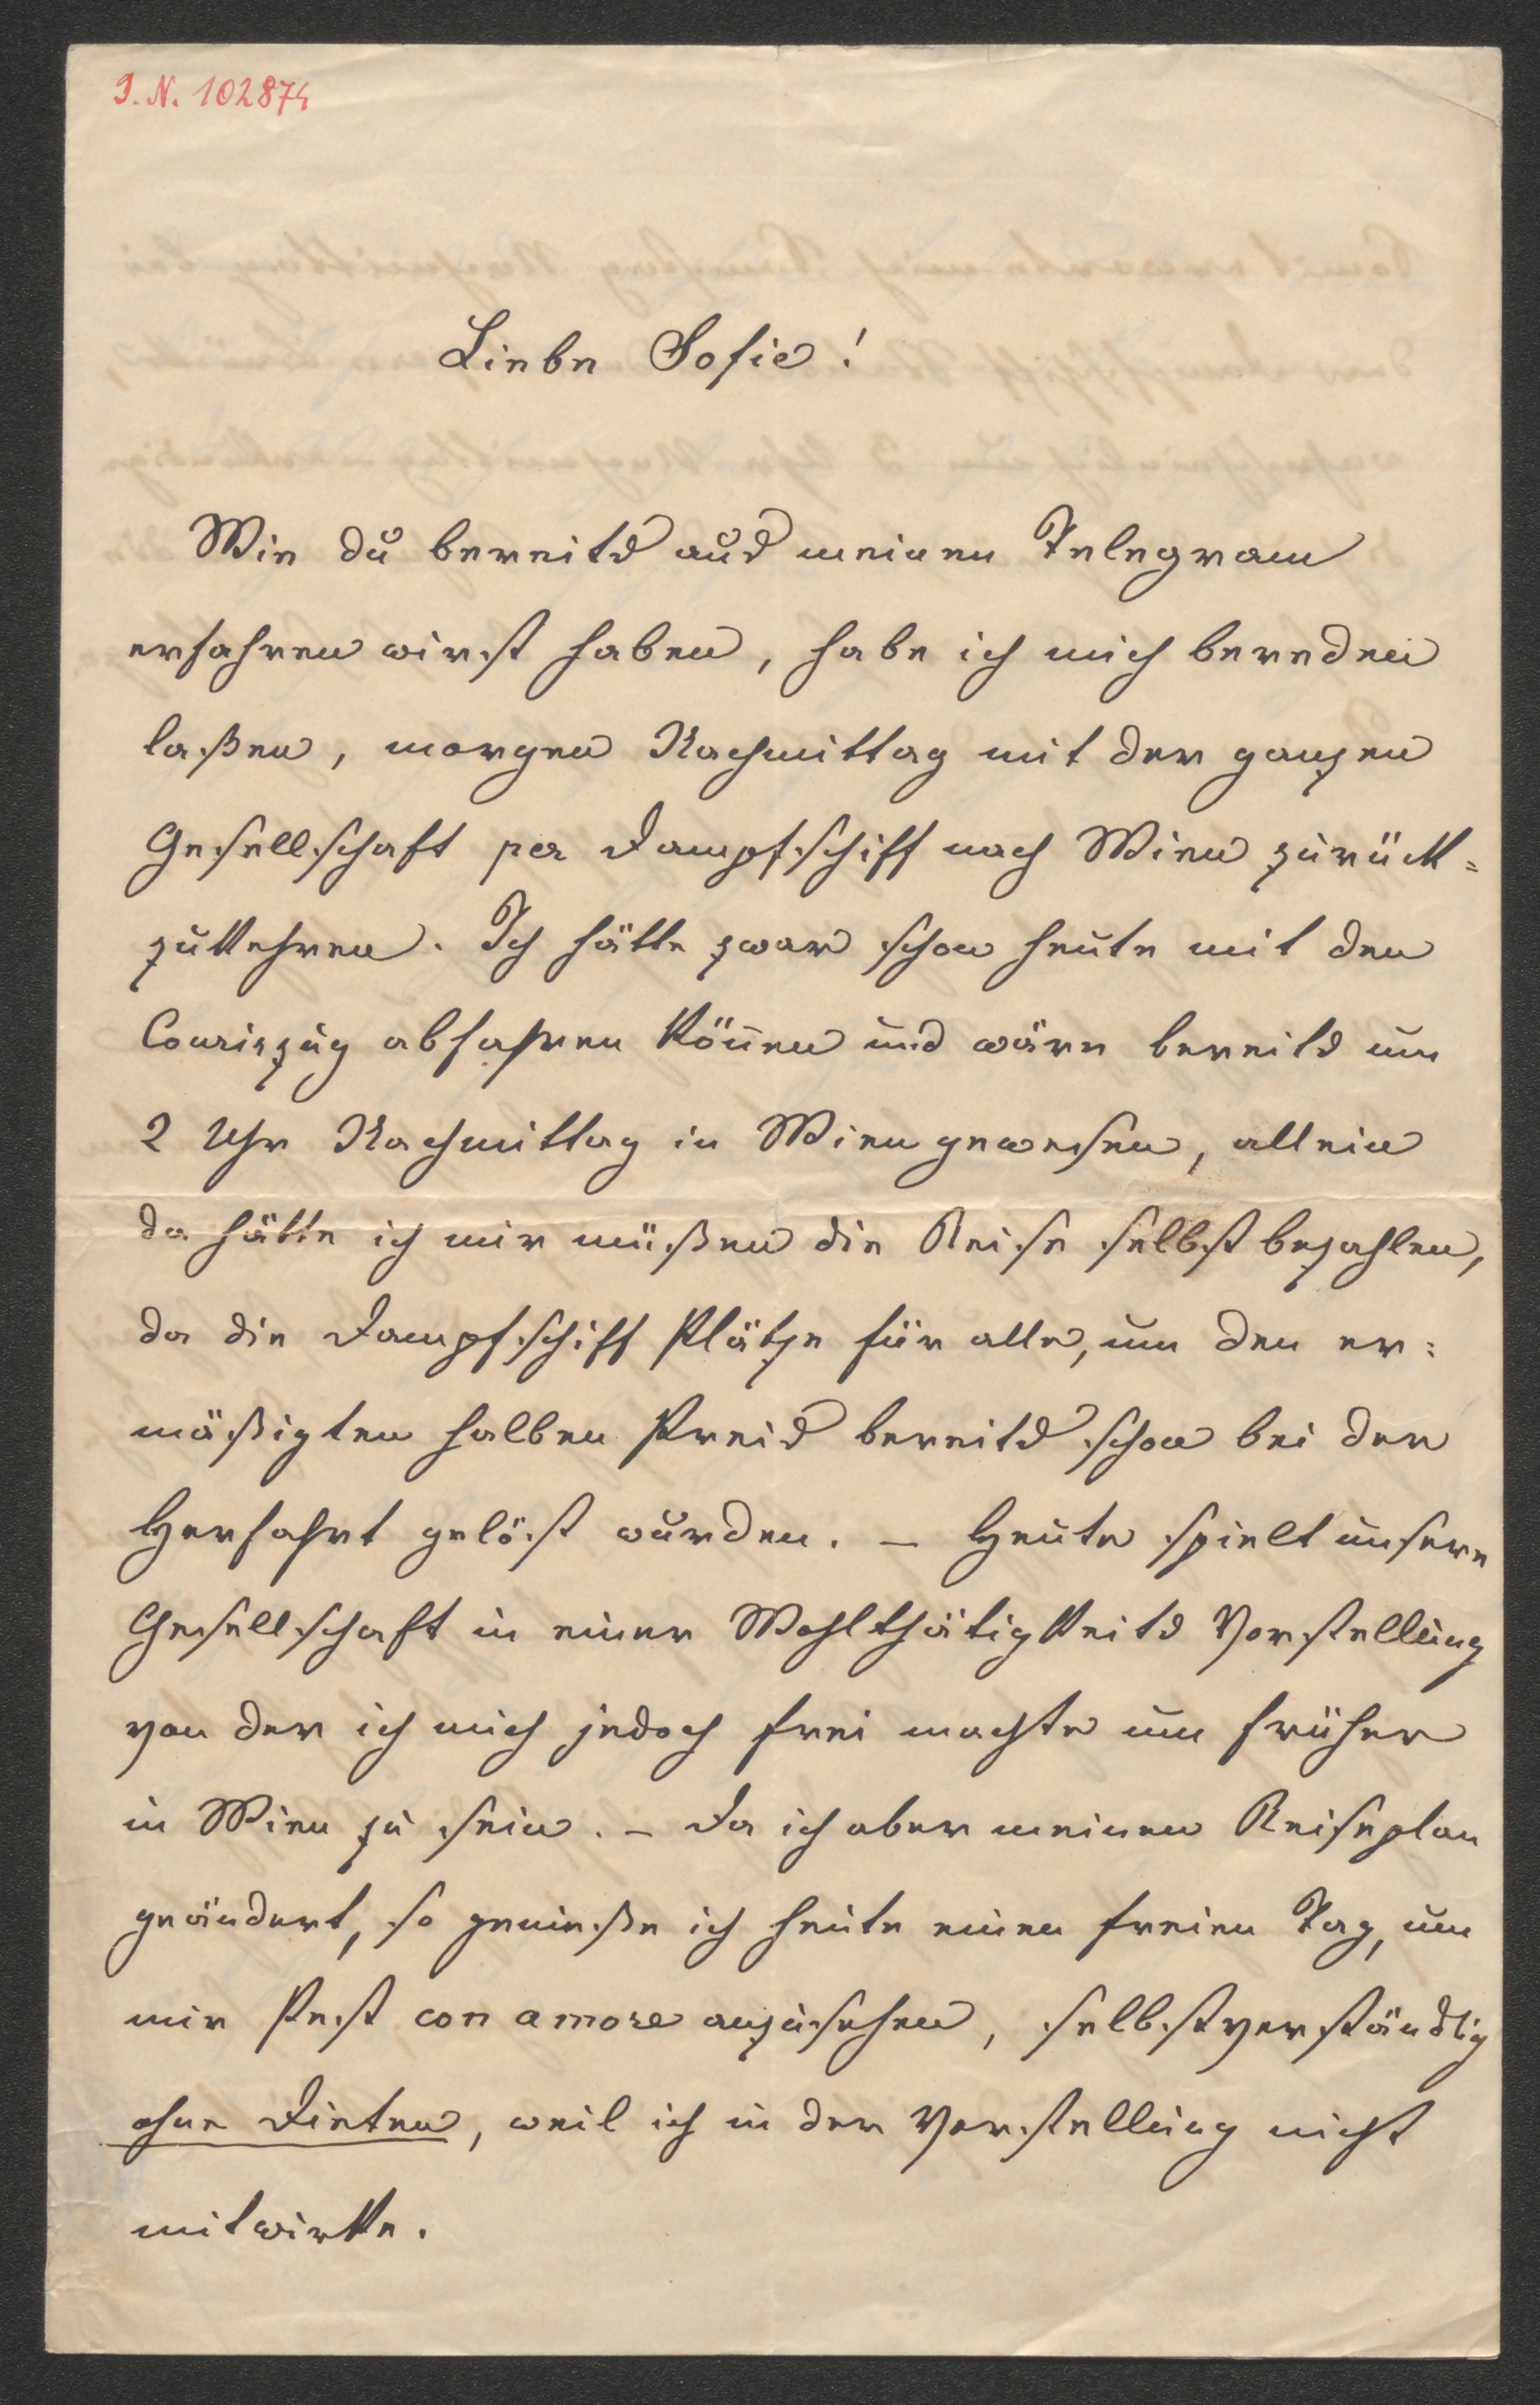 I. N. 102874
Liebe Sofie!
Wie du bereits aus meinen Telegram
erfahren wirst haben, habe ich mich bereden
laßen, morgen Nachmittag mit der ganzen
Gesellschaft per Dampfschiff nach Wien zurück=
zukehren. Ich hätte zwar schon heute mit den
Courirzug abfahren können und wäre bereits um
2 Uhr Nachmittag in Wien gewesen, allein
da hätte ich mir müßen die Reise selbst bezahlen,
da die Dampfschiff Plätze für alle, um den er=
mäßigten halben Preis bereits schon bei der
Herfahrt gelöst wurden. – Heute spielt unsere
Gesellschaft in einer Wohlthätigkeits Vorstellung
von der ich mich jedoch frei machte um früher
in Wien zu sein. – Da ich aber meinen Reiseplan
geändert, so genieße ich heute einen freien Tag, um
mir Pest con amore anzusehen, selbstverständlig
ohne Dieten, weil ich in der Vorstellung nicht
mitwirke.